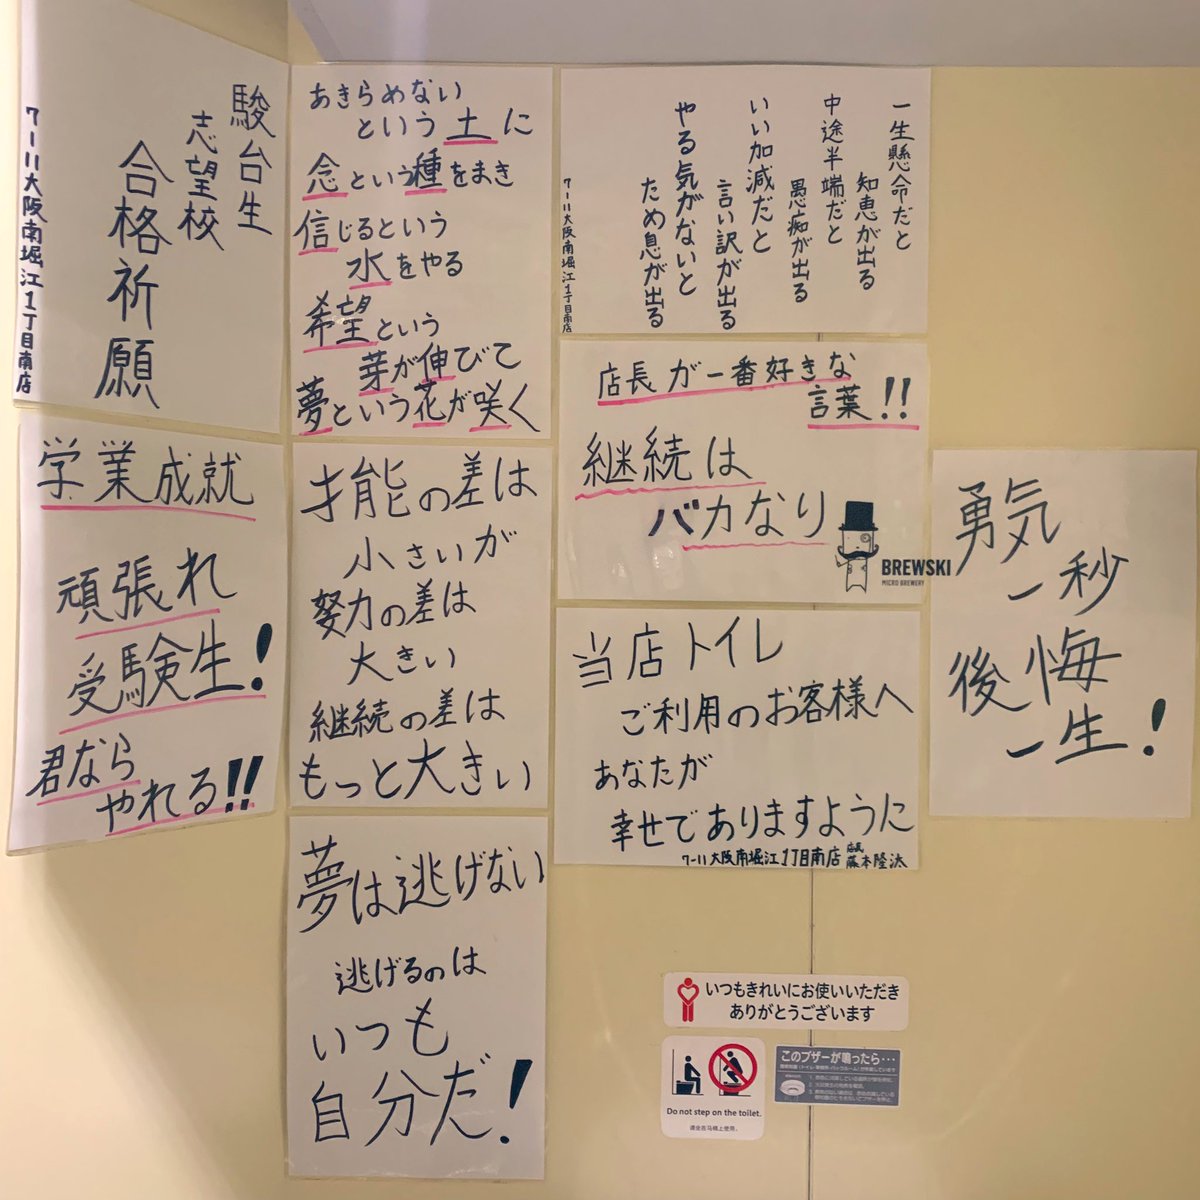 駿台生
志望校
合格祈願
7-11大阪南堀江1丁目南店
学業成就
頑張れ
受験生!
君なら
やれる!!
あきらめない
という土に
念という種をまき
信じるという
水をやる
希望という
芽が伸びて
夢という花が咲く
才能の差は
小さいが
努力の差は
大きい
継続の差は
もっと大きい
夢は逃げない
逃げるのは
いつも
自分だ!
一生懸命だと
知恵が出る
中途半端だと
愚痴が出る
いい加減だと
言い訳が出る
やる気がないと
ため息が出る
7-11大阪南堀江1丁目南店
店長が一番好きな
言葉!!
継続は
バカなり
BREWSKI
MICRO BREWERY
当店トイレ
ご利用のお客様へ
あなたが
幸せでありますように
7-11大阪南堀江1丁目南店 店長 藤本隆汰
勇気
一秒
後悔
一生!
いつもきれいにお使いいただき
ありがとうございます
Do not step on the toilet.
请坐在马桶上使用。
このブザーが鳴ったら…